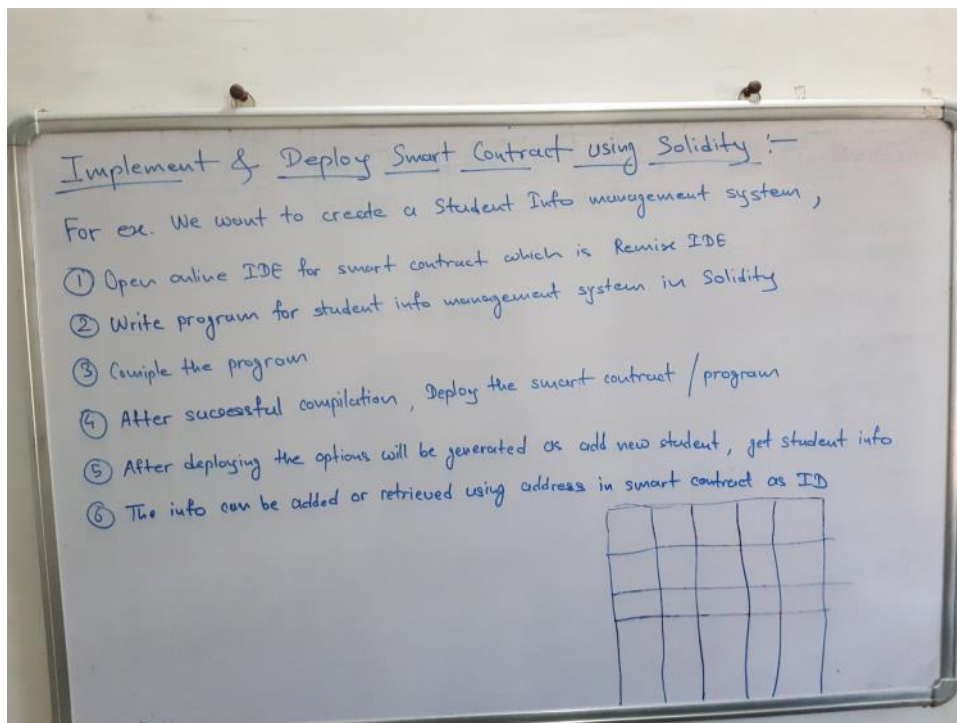 Implement & Deploy Smart Contract using Solidity :-
For ex. We want to create a Student Info management system,
① Open online IDE for smart contract which is Remix IDE
② Write program for student info management system in Solidity
③ Comiple the program
④ After successful compilation, Deploy the smart contract / program
⑤ After deploying the options will be generated as add new student, get student info
⑥ The info can be added or retrieved using address in smart contract as ID